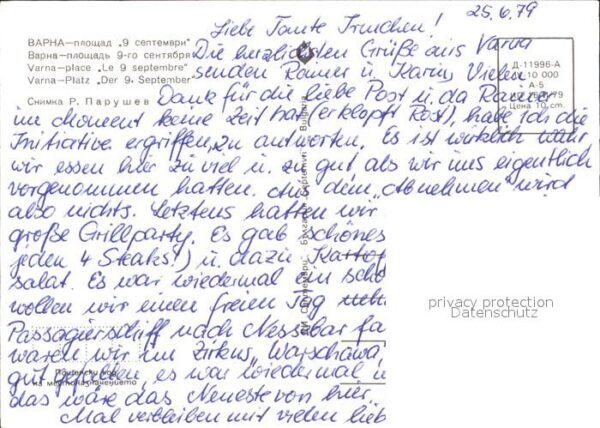 25.6.79
Liebe Tante Irmchen!
ВАРНА—площад „9 септември"
Варна—площадь 9-го сентября
Varna—place "Le 9 septembre"
Varna—Platz „Der 9. September"
Снимка Р. Парушев
Die herzlichsten Grüße aus Varna
senden Rainer u. Karin. Vielen
Dank für die liebe Post u. da Rainer
im Moment keine Zeit hat (er klopft Rost), habe ich die
Initiative ergriffen, zu antworten. Es ist wirklich wahr
wir essen hier zu viel u. zu gut als wir uns eigentlich
vorgenommen hatten. Aus dem „Abnehmen" wird
also nichts. Letztens hatten wir
große Grillparty. Es gab schönes
jeden 4 Steaks!) u. dazu Kartof
salat. Es war wiedermal ein schö
wollen wir einen freien Tag
Passagierschiff nach Nessebar fa
waren wir im Zirkus „Warschawa
gut gefallen, es war wiedermal
das wäre das Neueste von hier.
Mal verbleiben mit vielen lieb
Д-11996-А
10 000
А-5
79
Цена 10 cm.
Bulgaria
България
Септември
privacy protection
Datenschutz
Пощенски код
на местоназначението